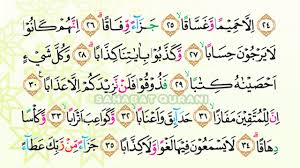 ٢٤ إِلَّا حَمِيمًا وَغَسَّاقًا ٢٥ جَزَآءً وِفَاقًا ٢٦ إِنَّهُمْ كَانُوا۟
لَا يَرْجُونَ حِسَابًا ٢٧ وَكَذَّبُوا۟ بِـَٔايَـٰتِنَا كِذَّابًا ٢٨ وَكُلَّ شَىْءٍ
أَحْصَيْنَـٰهُ كِتَـٰبًا ٢٩ فَذُوقُوا۟ فَلَن نَّزِيدَكُمْ إِلَّا عَذَابًا ٣٠
SAHABAT QURANI
إِنَّ لِلْمُتَّقِينَ مَفَازًا ٣١ حَدَآئِقَ وَأَعْنَـٰبًا ٣٢ وَكَوَاعِبَ أَتْرَابًا ٣٣ وَكَأْسًا
دِهَاقًا ٣٤ لَّا يَسْمَعُونَ فِيهَا لَغْوًا وَلَا كِذَّٰبًا ٣٥ جَزَآءً مِّن رَّبِّكَ عَطَآءً